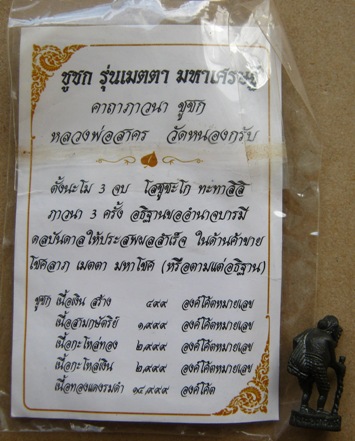 ชูชก รุ่นเมตตา มหาเศรษฐี
คาถาภาวนา ชูชก
หลวงพ่อสาคร วัดหนองกรับ
ตั้งนะโม 3 จบ โสชูชะโก ทะทาลิลิ
ภาวนา 3 ครั้ง อธิฐานขออำนาจบารมี
ดลบันดาลให้ประสพผลสำเร็จ ในด้านค้าขาย
โชคลาภ เมตตา มหาโชค (หรือตามแต่อธิฐาน)
ชูชก เนื้อเงิน สร้าง ๔๙๙ องค์โค๊ตหมายเลข
เนื้อสามกษัตริย์ ๑,๙๙๙ องค์โค๊ตหมายเลข
เนื้อกะไหล่ทอง ๒,๙๙๙ องค์โค๊ตหมายเลข
เนื้อกะไหล่เงิน ๒,๙๙๙ องค์โค๊ตหมายเลข
เนื้อทองแดงรมดำ ๑๔,๙๙๙ องค์โค๊ต